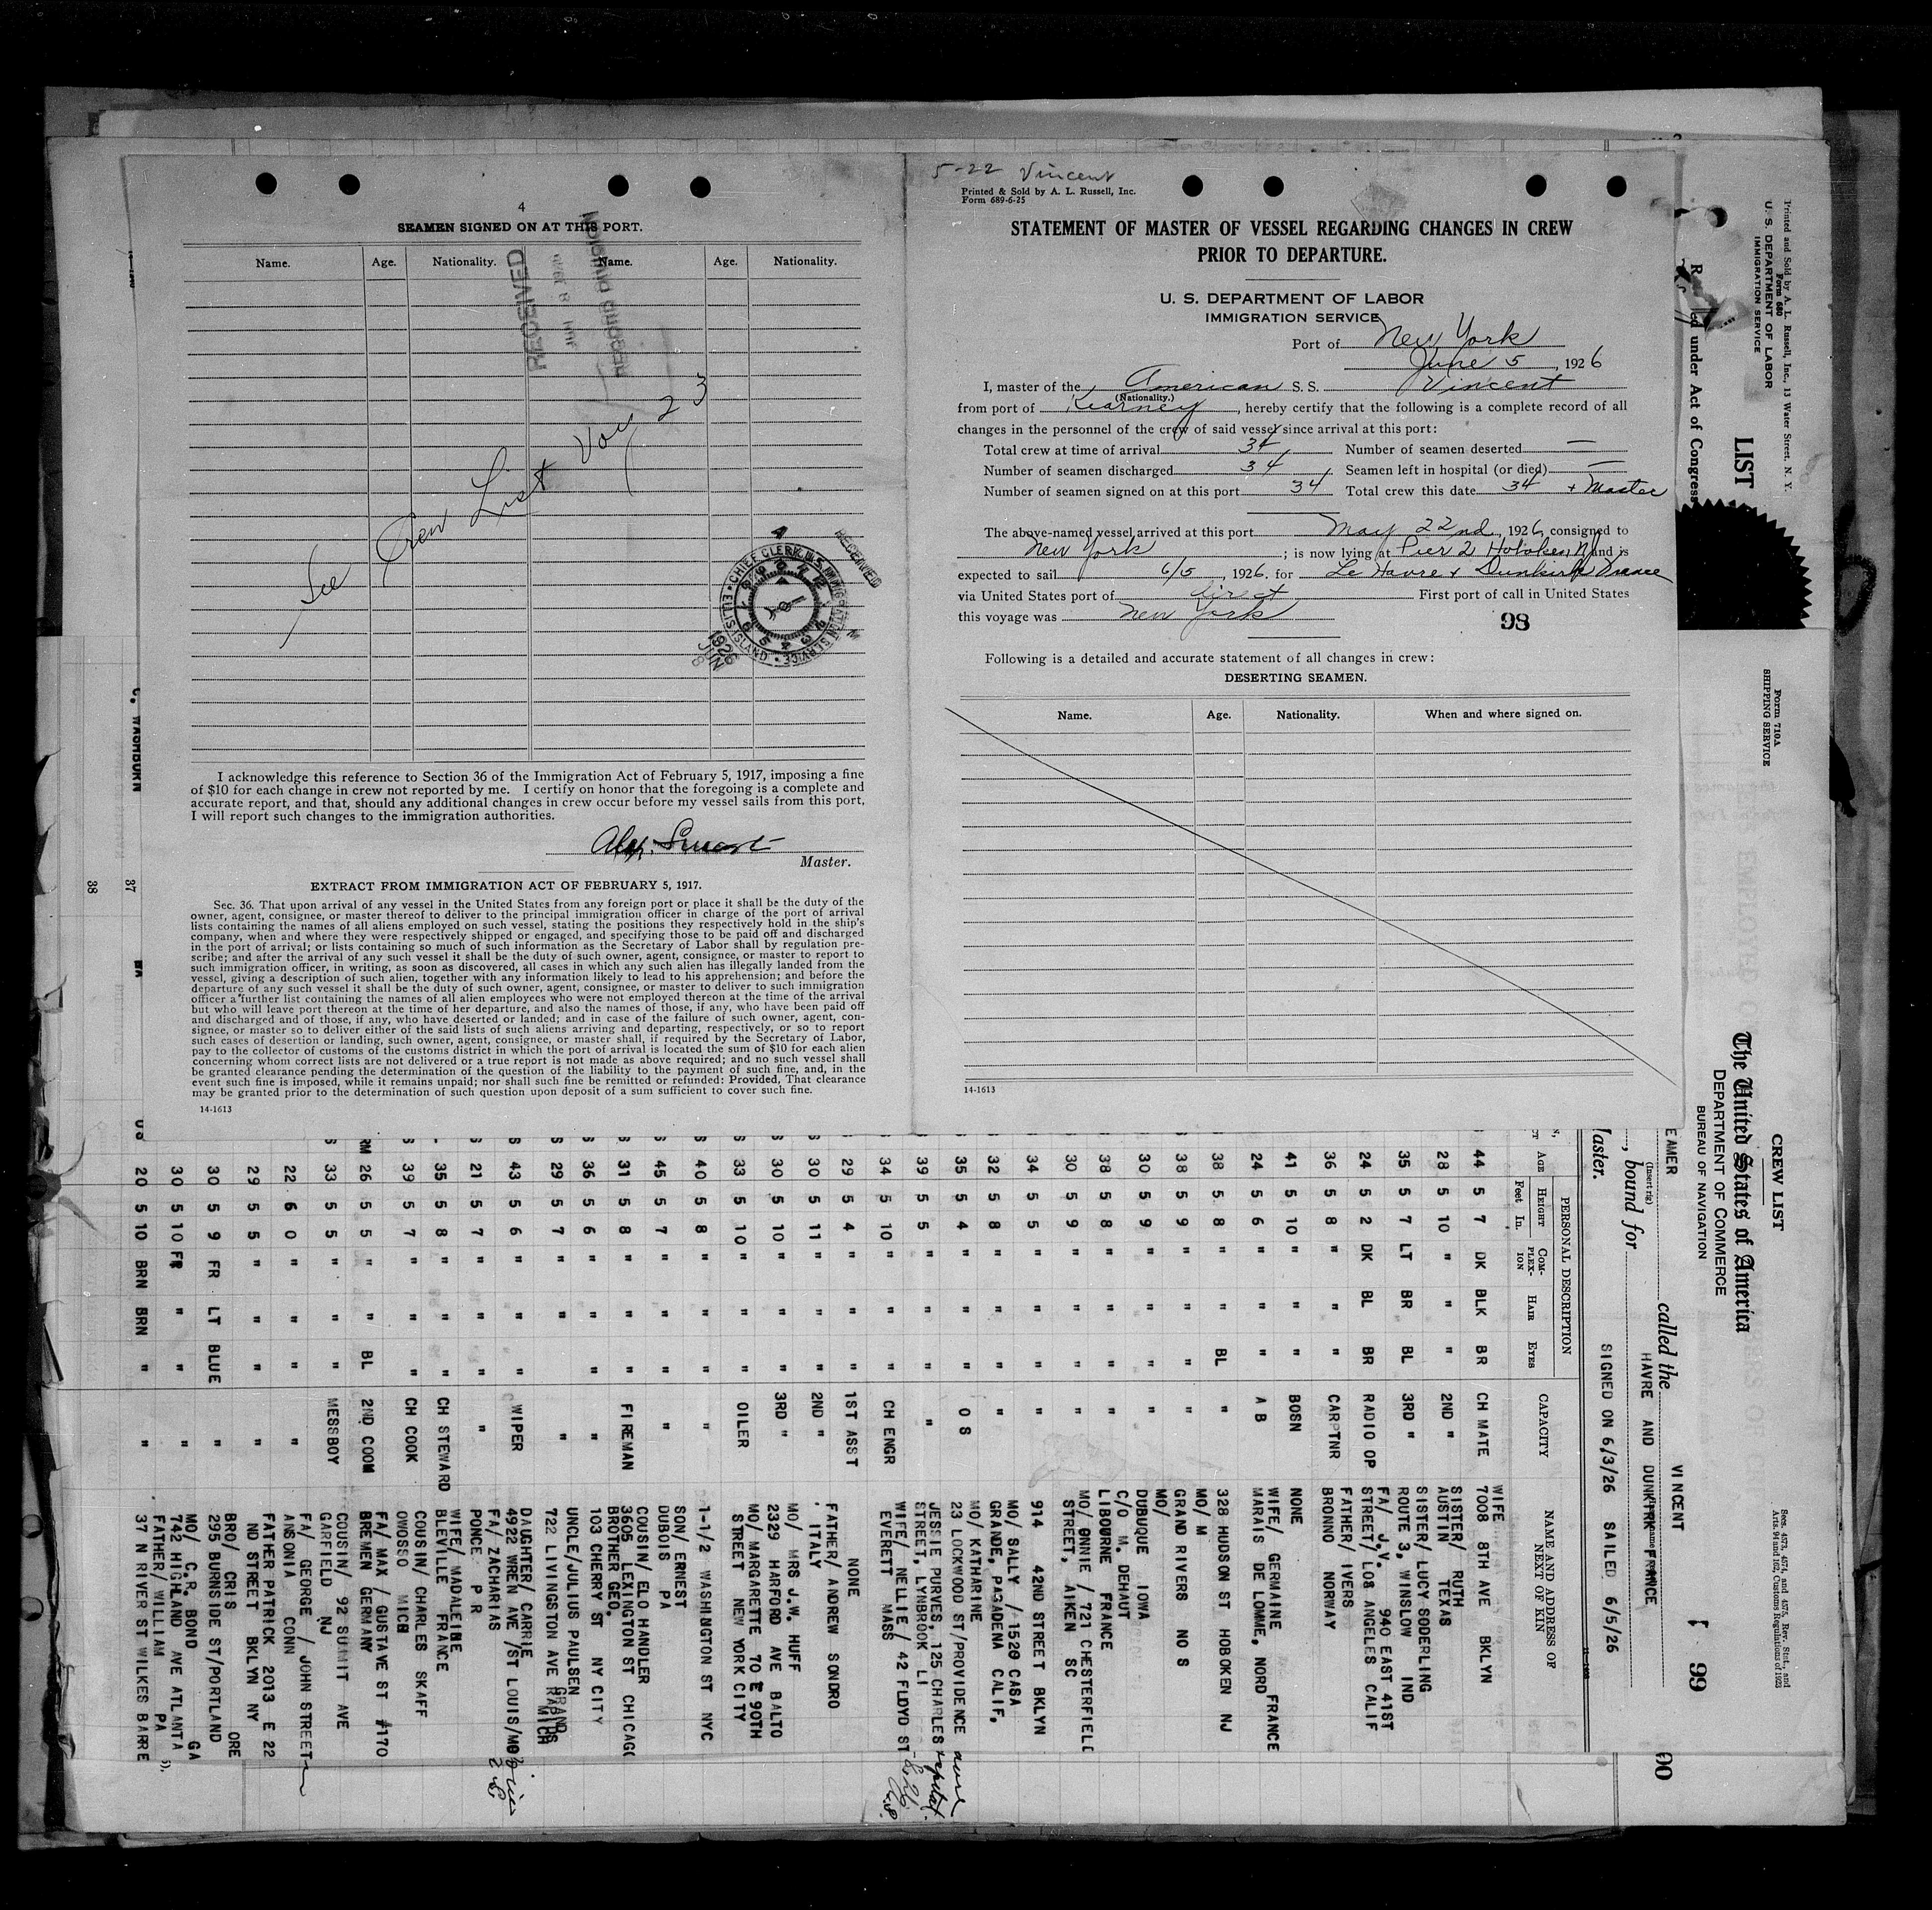 4
SEAMEN SIGNED ON AT THIS PORT.
Name. Age. Nationality. Name. Age. Nationality.
RECEIVED
See Crew List Voy 23
CHIEF CLERK U.S. IMMIGRATION SERVICE
ELLIS ISLAND
RECEIVED
JUN 8
1926
I acknowledge this reference to Section 36 of the Immigration Act of February 5, 1917, imposing a fine
of $10 for each change in crew not reported by me. I certify on honor that the foregoing is a complete and
accurate report, and that, should any additional changes in crew occur before my vessel sails from this port,
I will report such changes to the immigration authorities.
Master.
EXTRACT FROM IMMIGRATION ACT OF FEBRUARY 5, 1917.
Sec. 36. That upon arrival of any vessel in the United States from any foreign port or place it shall be the duty of the
owner, agent, consignee, or master thereof to deliver to the principal immigration officer in charge of the port of arrival
lists containing the names of all aliens employed on such vessel, stating the positions they respectively hold in the ship's
company, when and where they were respectively shipped or engaged, and specifying those to be paid off and discharged
in the port of arrival; or lists containing so much of such information as the Secretary of Labor shall by regulation pre-
scribe; and after the arrival of any such vessel it shall be the duty of such owner, agent, consignee, or master to report to
such immigration officer, in writing, as soon as discovered, all cases in which any such alien has illegally landed from the
vessel, giving a description of such alien, together with any information likely to lead to his apprehension; and before the
departure of any such vessel it shall be the duty of such owner, agent, consignee, or master to deliver to such immigration
officer a further list containing the names of all alien employees who were not employed thereon at the time of the arrival
but who will leave port thereon at the time of her departure, and also the names of those, if any, who have been paid off
and discharged and of those, if any, who have deserted or landed; and in case of the failure of such owner, agent, con-
signee, or master so to deliver either of the said lists of such aliens arriving and departing, respectively, or so to report
such cases of desertion or landing, such owner, agent, consignee, or master shall, if required by the Secretary of Labor,
pay to the collector of customs of the customs district in which the port of arrival is located the sum of $10 for each alien
concerning whom correct lists are not delivered or a true report is not made as above required; and no such vessel shall
be granted clearance pending the determination of the question of the liability to the payment of such fine, and, in the
event such fine is imposed, while it remains unpaid; nor shall such fine be remitted or refunded: Provided, That clearance
may be granted prior to the determination of such question upon deposit of a sum sufficient to cover such fine.
14-1613
5-22 Vincent
Printed & Sold by A. L. Russell, Inc.
Form 689-6-25
STATEMENT OF MASTER OF VESSEL REGARDING CHANGES IN CREW
PRIOR TO DEPARTURE.
U. S. DEPARTMENT OF LABOR
IMMIGRATION SERVICE
Port of New York
June 5, 1926
I, master of the American S. S. Vincent
(Nationality.)
from port of Kearney, hereby certify that the following is a complete record of all
changes in the personnel of the crew of said vessel since arrival at this port:
Total crew at time of arrival 34 Number of seamen deserted —
Number of seamen discharged 34 Seamen left in hospital (or died) —
Number of seamen signed on at this port 34 Total crew this date 34 + Master
The above-named vessel arrived at this port May 22nd, 1926, consigned to
New York; is now lying at Pier 2 Hoboken NJ and is
expected to sail 6/5, 1926. for Le Havre & Dunkirk France
via United States port of direct First port of call in United States
this voyage was New York
98
Following is a detailed and accurate statement of all changes in crew:
DESERTING SEAMEN.
Name. Age. Nationality. When and where signed on.
14-1613
Printed and Sold by A. L. Russell, Inc., 13 Water Street, N. Y.
Form 680
U. S. DEPARTMENT OF LABOR
IMMIGRATION SERVICE
LIST
under Act of Congress
Form 710A
SHIPPING SERVICE
CREW LIST
The United States of America
DEPARTMENT OF COMMERCE
BUREAU OF NAVIGATION
Secs. 4573, 4574, and 4575, Rev. Stat., and
Arts. 94 and 102, Customs Regulations of 1923
99
called the VINCENT
bound for HAVRE AND DUNKIRK FRANCE
Master.
SIGNED ON 6/3/26 SAILED 6/5/26
PERSONAL DESCRIPTION
AGE HEIGHT Feet In. COM-PLEX-ION HAIR EYES CAPACITY NAME AND ADDRESS OF NEXT OF KIN
44 5 7 DK BLK BR CH MATE WIFE
7008 8TH AVE BKLYN
28 5 10 " " " 2ND " SISTER/ RUTH
AUSTIN TEXAS
35 5 7 LT BR BL 3RD " SISTER/ LUCY SODERLING
ROUTE 3, WINSLOW IND
24 5 2 DK BL BR RADIO OP FA/ J.V. 940 EAST 41ST
STREET/ LOS ANGELES CALIF
36 5 8 " " " CARPTNR FATHER/ IVERS
BRONNO NORWAY
41 5 10 " " " BOSN NONE
24 5 6 " " " A B WIFE/ GERMAINE
MARAIS DE LOMME, NORD FRANCE
38 5 8 " " BL " 328 HUDSON ST HOBOKEN NJ
MO/ M
38 5 9 " " " " GRAND RIVERS NO S
MO/
30 5 9 " " " " DUBUQUE IOWA
C/O M. DEHAUT
38 5 8 " " " " LIBOURNE FRANCE
30 5 9 " " " " MO/ ONNIE / 721 CHESTERFIELD
STREET, AIKEN SC
34 5 5 " " " " 914 42ND STREET BKLYN
32 5 8 " " " " MO/ SALLY / 1520 CASA
GRANDE, PASADENA CALIF.
35 5 4 " " " O S MO/ KATHARINE
23 LOCKWOOD ST/PROVIDENCE
39 5 5 " " " " JESSIE PURVES, 125 CHARLES
STREET, LYNBROOK LI
34 5 10 " " " CH ENGR WIFE/ NELLIE / 42 FLOYD ST
EVERETT MASS
29 5 4 " " " 1ST ASST NONE
30 5 11 " " " 2ND " FATHER/ ANDREW SONDRO
ITALY
30 5 10 " " " 3RD " MO/ MRS J.W. HUFF
2329 HARFORD AVE BALTO
33 5 10 " " " OILER MO/ MARGARETTE 70 E 90TH
STREET NEW YORK CITY
40 5 8 " " " " 1-1/2 WASHINGTON ST NYC
45 5 7 " " " " SON/ ERNEST
DUBOIS PA
31 5 8 " " " FIREMAN COUSIN/ ELO HANDLER
3605 LEXINGTON ST CHICAGO
BROTHER GEO.
36 5 6 " " " " 103 CHERRY ST NY CITY
29 5 7 " " " UNCLE/JULIUS PAULSEN
722 LIVINGSTON AVE GRAND RAPIDS MICH
43 5 6 " " " WIPER DAUGHTER/ CARRIE
4922 WREN AVE /ST LOUIS/MO
21 5 7 " " " " FA/ ZACHARIAS
PONCE P R
35 5 8 " " " CH STEWARD WIFE/ MADALEINE
BLEVILLE FRANCE
39 5 7 " " " CH COOK COUSIN/ CHARLES SKAFF
OWOSSO MICH
26 5 5 " " BL 2ND COOK FA/ MAX / GUSTAVE ST #170
BREMEN GERMANY
33 5 5 " " " MESSBOY COUSIN/ 92 SUMMIT AVE
GARFIELD NJ
22 6 0 " " " " FA/ GEORGE / JOHN STREET
ANSONIA CONN
29 5 5 " " " " FATHER PATRICK 2013 E 22
ND STREET BKLYN NY
30 5 9 FR LT BLUE " BRO/ CRIS
295 BURNSIDE ST/PORTLAND ORE
30 5 10 FR " " " MO/ C.R. BOND
742 HIGHLAND AVE ATLANTA GA
20 5 10 BRN BRN " " FATHER/ WILLIAM PA
37 N RIVER ST WILKES BARRE
C. WASHBURN
37
38